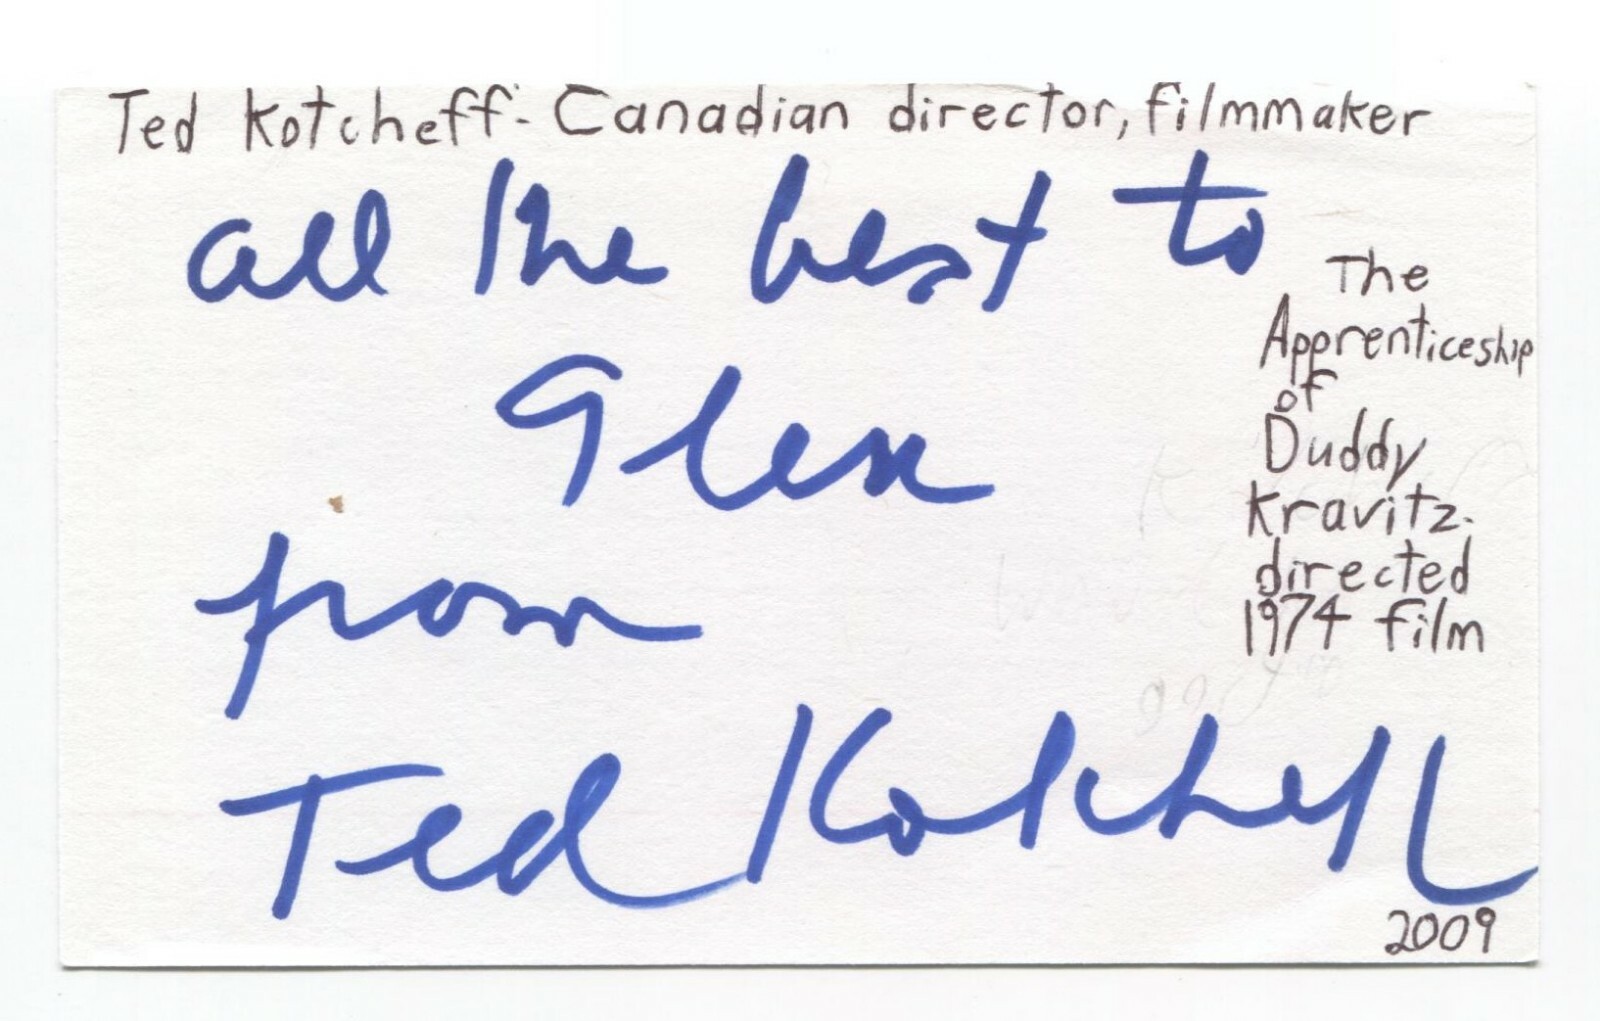 Ted Kotcheff- Canadian director, filmmaker
all the best to
Glen
from
Ted Kotcheff
The
Apprenticeship
of
Duddy
Kravitz-
directed
1974 film
2009